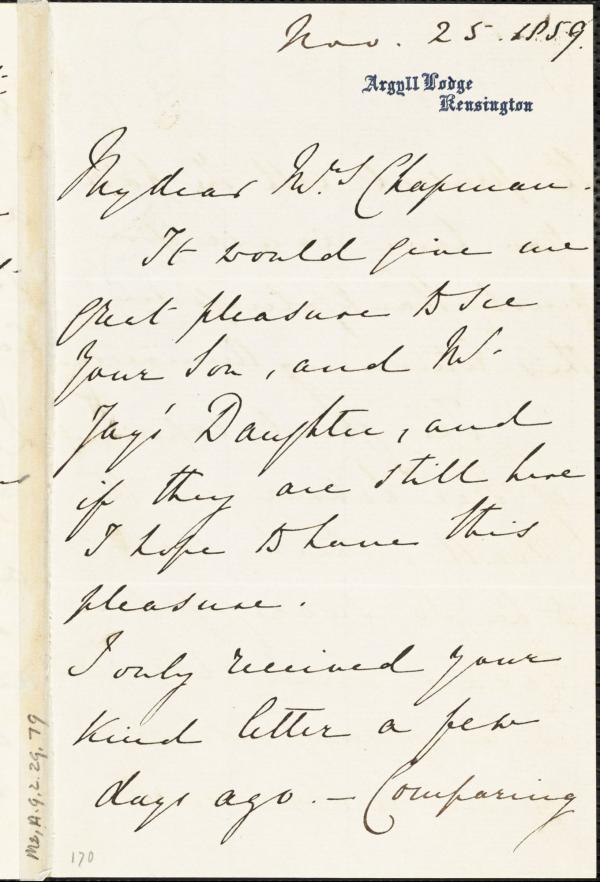 Nov. 25. 1859.
Argyll Lodge
Kensington
My dear Mrs Chapman.
It would give me
great pleasure to see
your Son, and Mr.
Jay's Daughter, and
if they are still here
I hope to have this
pleasure.
I only received your
kind letter a few
days ago. — Comparing
Ms. A. 9. 2. 29. 79
170